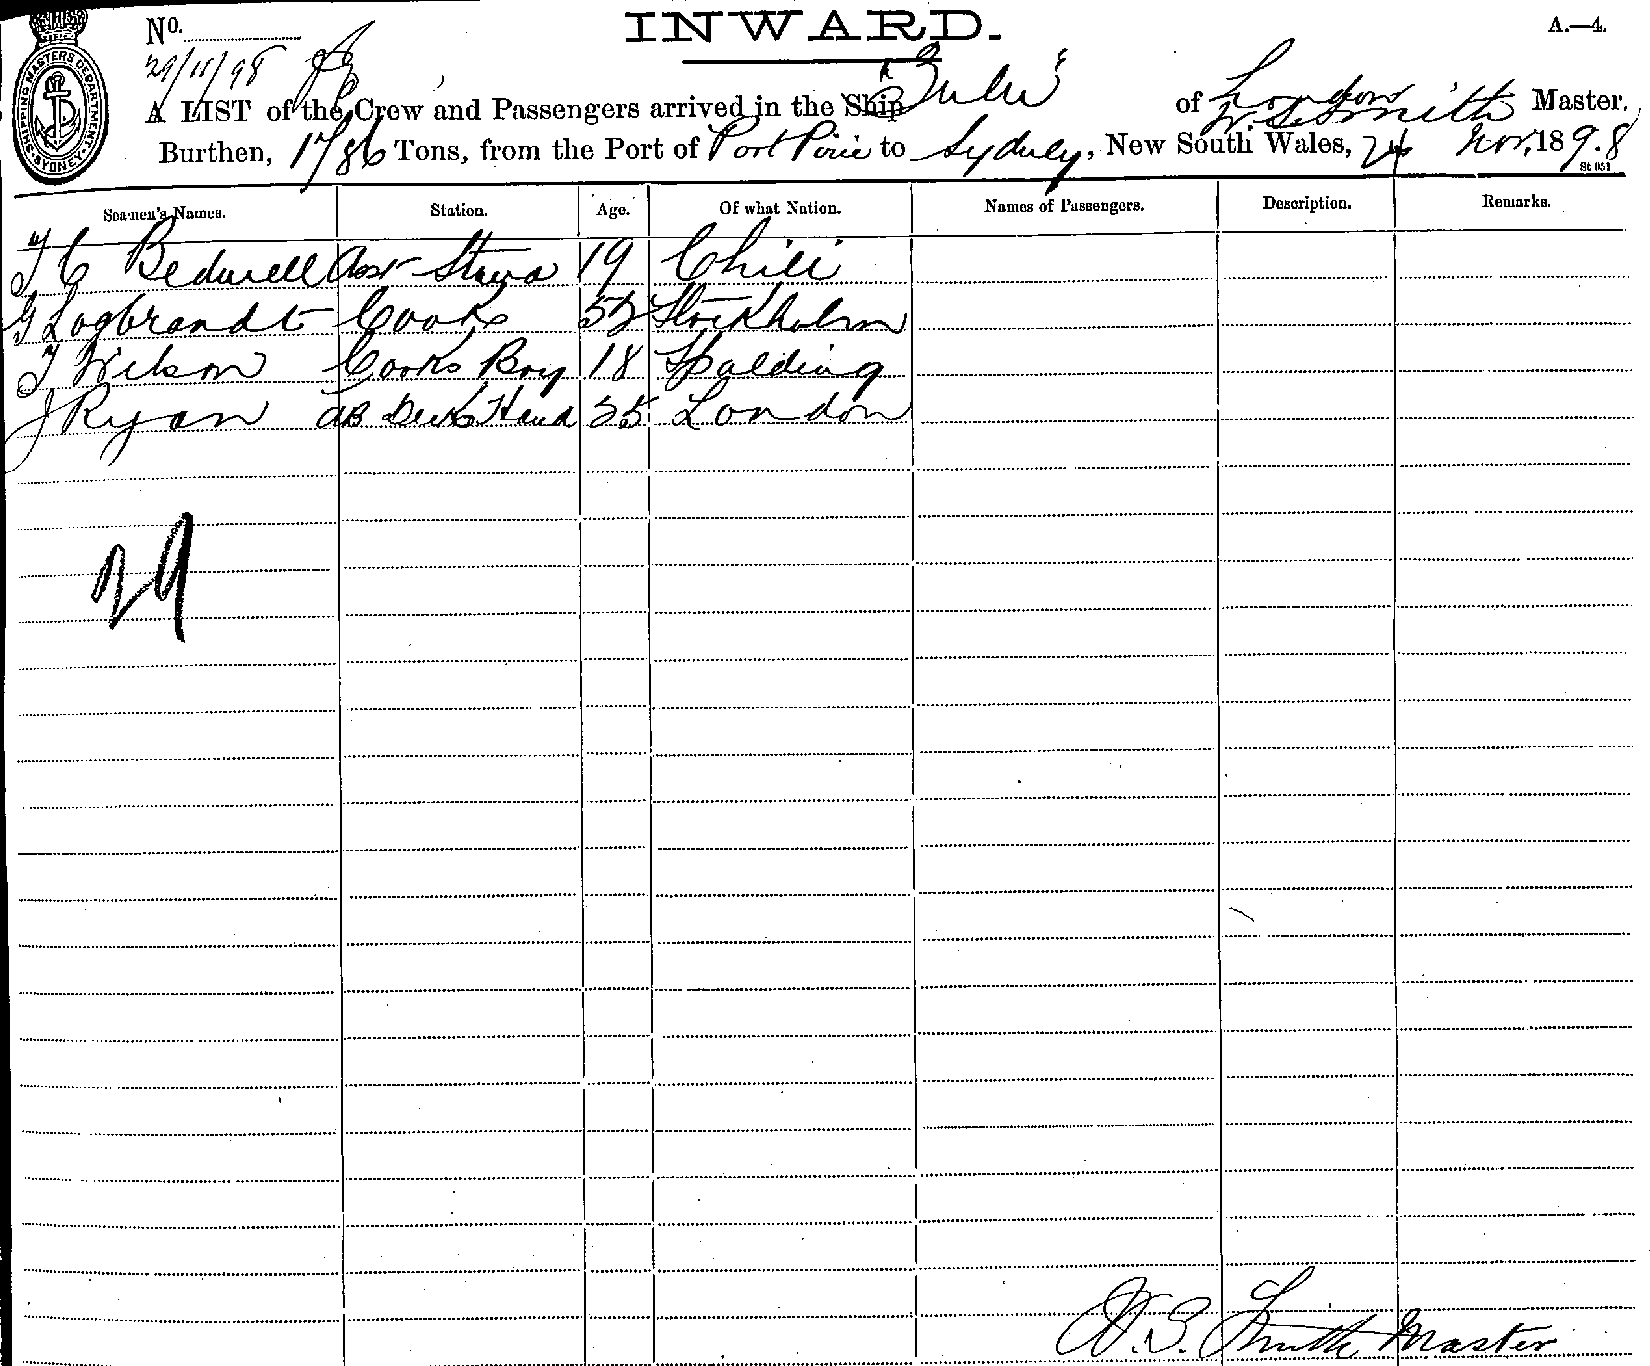 INWARD.
A.—4.
No.
29/11/98
SHIPPING MASTERS DEPARTMENT SYDNEY
A LIST of the Crew and Passengers arrived in the Ship "Zulu" of London W. S. Smith Master,
Burthen, 1786 Tons, from the Port of Port Pirie to Sydney, New South Wales, 24 Nov. 1898
St 051
Seamen's Names. Station. Age. Of what Nation. Names of Passengers. Description. Remarks.
T C Bedwell Asst Stewd 19 Chili
G Logbrandt Cook 52 Stockholm
T Wilson Cooks Boy 18 Spalding
J Ryan AB Deck Hand 25 London
29
W. S. Smith Master